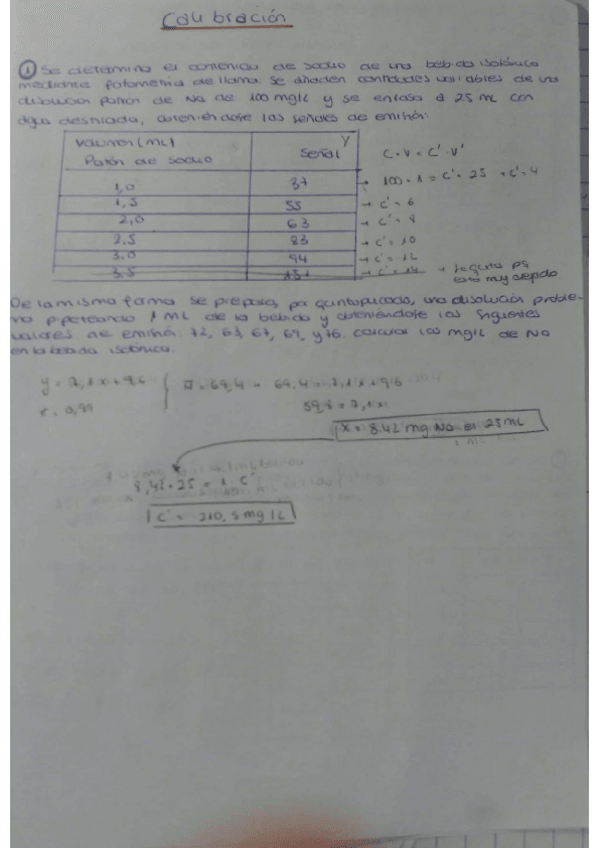 Calibración
① Se determina el contenido de sodio de una bebida isotónica
mediante fotometría de llama. Se añaden cantidades variables de una
disolución patrón de Na de 100 mg/L y se enrasa a 25 mL con
agua destilada, obteniéndose las señales de emisión:
Volumen (mL) Patón de sodio Señal Y C·V = C'·V'
1,0 37 → 100·1 = C'·25 → C'= 4
1,5 55 → C'= 6
2,0 63 → C'= 8
2,5 83 → C'= 10
3,0 94 → C'= 12
3,5 151 → C'= 14 → se quita pq
está muy alejado
De la misma forma se prepara, por quintuplicado, una disolución proble-
ma pipeteando 1 mL de la bebida y obteniéndose los siguientes
valores de emisión: 72, 63, 67, 69, y 76. Calcular los mg/L de Na
en la bebida isotónica.
y = 7,1x + 9,6
r = 0,99
69,4 → 69,4 = 7,1x + 9,6
59,8 = 7,1x
X = 8.42 mg Na en 25 mL
8,42·25 = 1 C'
C' = 210,5 mg/L